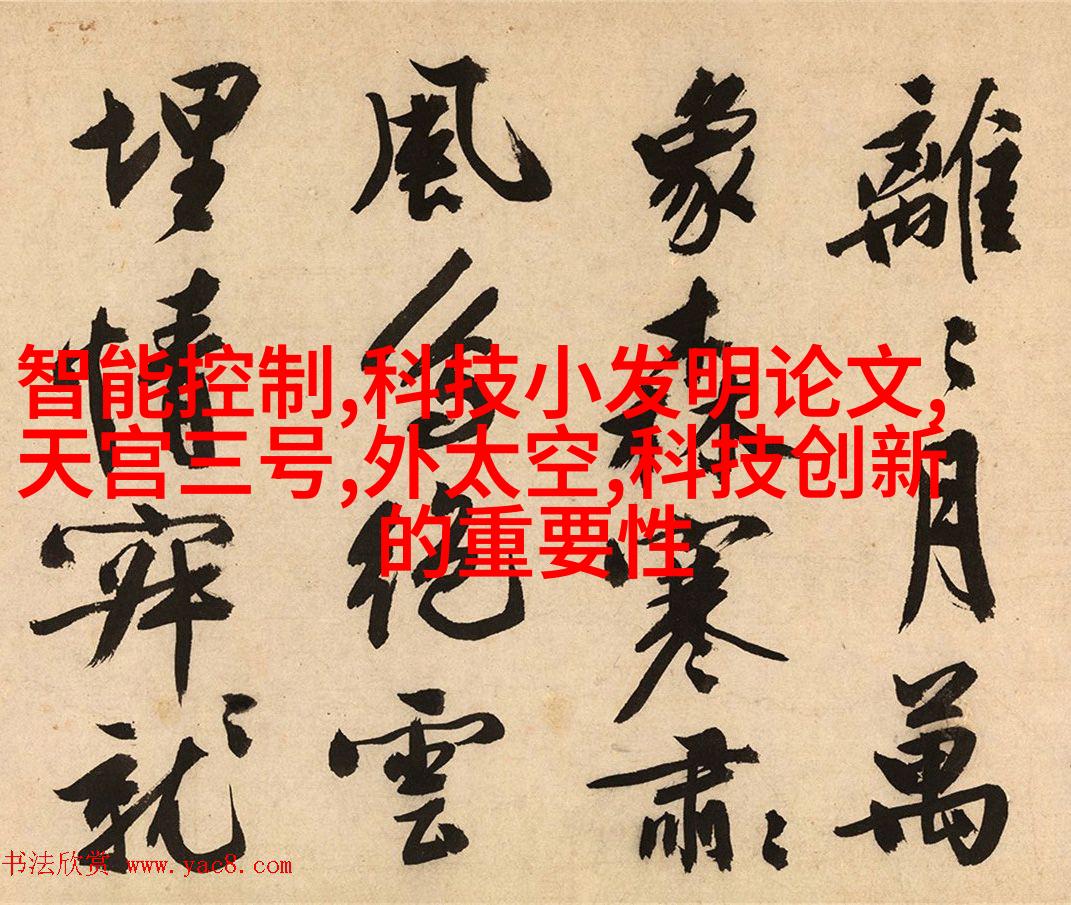 離〻月萬
象森寒肅〻
風絶雲
埋穽
智能控制,科技小发明论文,
天宫三号,外太空,科技创新
的重要性
书法欣赏 www.yac8.com